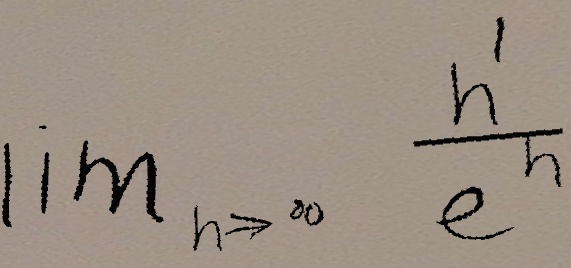 lim_{h→∞} \frac{h^1}{e^h}